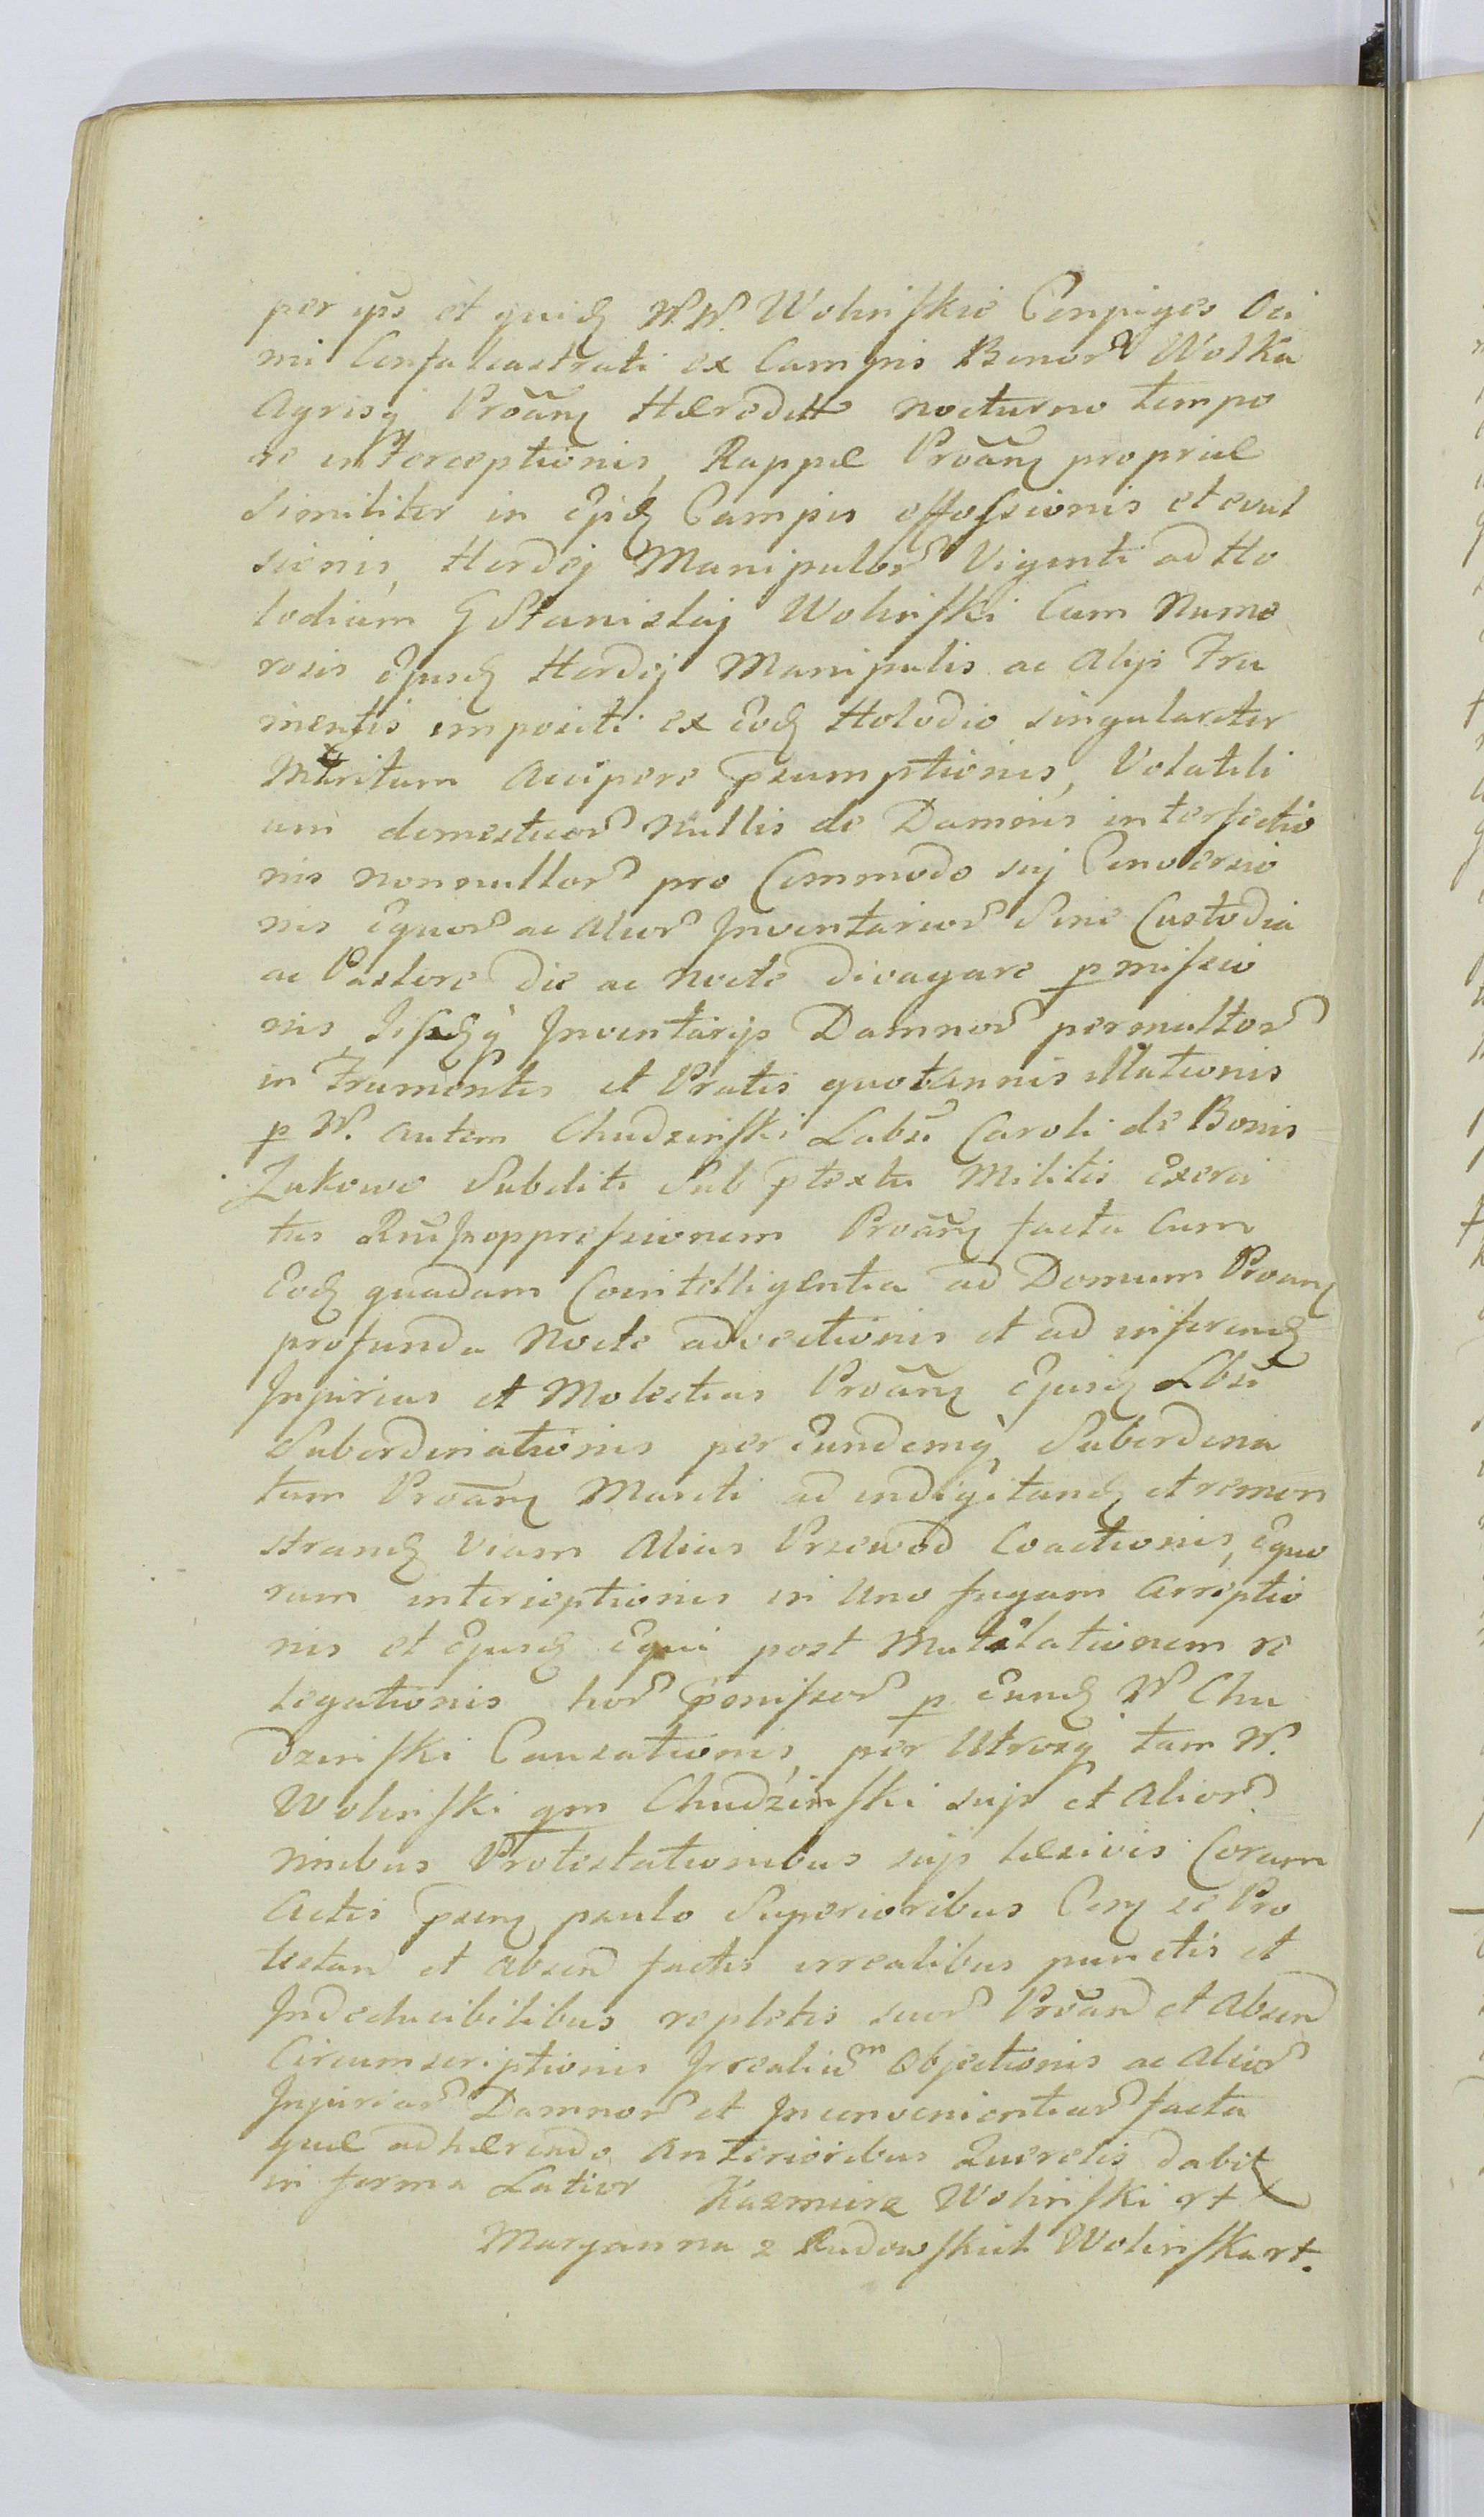 per ips et quidȝ W.W. Wolińskie Conjuges Oci
mi Consulcastrati ex Campis Bonor Wolka
Agrisq Proãnȝ Hæredit nocturno tempo
re interceptionis, Rappæ Proãnȝ propriæ
similiter in Ejsdȝ Campis effossionis et evul
sionis, Hordej Manipulor Viginti ad Ho
lodium G Stanislaj Woliński Cum Nume
rosis Ejusdȝ Hordej Manipulis ac Alijs Fru
mentis impositi ex Eodȝ Holodio singulariter
Maritum Accipere psumptionis, Volatili
um domesticor Nullis de Damnis interfectio
nis nonnullor pro Commodo suj Conversio
nis Equor ac Alior Inventarior Sine Custodia
ac Pastore die ac Nocte divagare pmissio
nis, Jisdȝq Inventarijs Damnor permultor
in Frumentis et Pratis quotannis illationis
p W. autem Chudziński Labũ Caroli de Bonis
Zukowo Subditi Sub ptextu Militis Exerci
tus Rũ in oppressionem Proãnȝ facta Cum
Eodȝ quadam Cointelligentia ad Domum Proanȝ
profunda Nocte advectionis et ad inferendȝ
Injurias et Molestias Proãnȝ Ejusdȝ Lbũ
Subordinationis per Eundemq Subordina
tum Proãnȝ Mariti ad indigitandȝ et remon
strandȝ Viam Alias Przewod Coactionis, Equo
rum interceptionis in Uno fugam Arreptio
nis et Ejusdȝ Equi post Mutilationem re
legationis hor pmissor p Eundȝ W Chu
dziński Causationis, per Utrosq tam W.
Woliński qm Chudziński sujs et Alior
nibus Protestationibus sujs læsivis Coram
Actis psenȝ paulo Superioribus Conȝ se Pro
testan et Absen factis irrealibus punctis et
Indeducibilibus repletis suor Proãn et Absen
Circumscriptionis Irrealiũm Objectionis ac Alior
Injuriar Damnor et Inconvenientiar facta
quæ adhærendo Anterioribus Querelis dabit
in forma Latior Kazmierz Woliński rt
Maryanna z Rudowskich Wolińska rt.